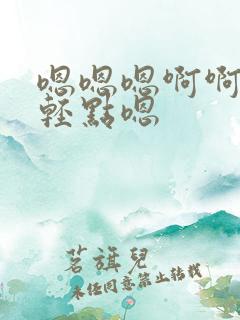 嗯嗯嗯啊啊
輕點嗯
茗旗兒
未经同意禁止转载